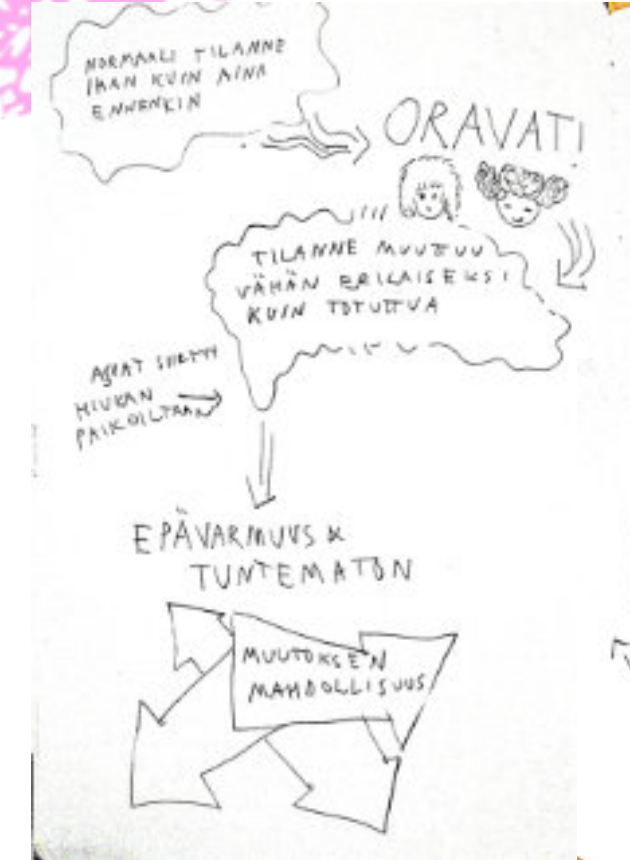 NORMAALI TILANNE
IHAN KUIN AINA
ENNENKIN
ORAVAT!
TILANNE MUUTTUU
VÄHÄN ERILAISEKSI
KUIN TOTUTTUA
ASIAT SIIRTYY
HIUKAN
PAIKOILTAAN
EPÄVARMUUS &
TUNTEMATON
MUUTOKSEN
MAHDOLLISUUS